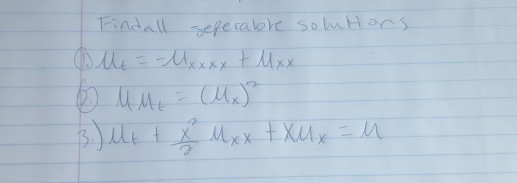 Find all seperable solutions
1.) u_t = -u_xxxx + u_xx
2.) u u_t = (u_x)²
3.) u_t + x²/2 u_xx + x u_x = u